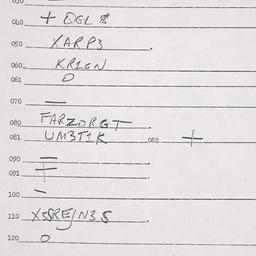 040 + DGL 8
050 XARP3
060 KR1GN
061 O
070 —
080 FARZORGT
081 UM3T1K 082 +
090 =
091
100 -
110 X3SREJN3S
120 O